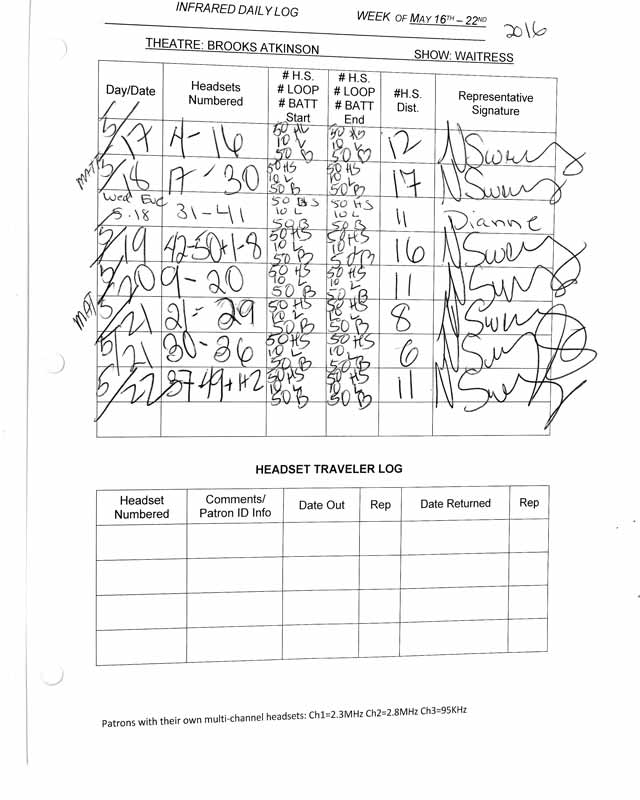 INFRARED DAILY LOG WEEK OF MAY 16TH – 22ND 2016
THEATRE: BROOKS ATKINSON SHOW: WAITRESS
Day/Date Headsets Numbered # H.S. # LOOP # BATT Start # H.S. # LOOP # BATT End #H.S. Dist. Representative Signature
5/17 4-16 50 HS 10 L 50 B 50 HS 10 L 50 B 12
MAT 5/18 17-30 50 HS 10 L 50 B 50 HS 10 L 50 B 17
Wed Eve 5.18 31-41 50 HS 10 L 50 B 50 HS 10 L 50 B 11 Dianne
5/19 42-50+1-8 50 HS 10 L 50 B 50 HS 10 L 50 B 16
5/20 9-20 50 HS 10 L 50 B 50 HS 10 L 50 B 11
MAT 5/21 21-29 50 HS 10 L 50 B 50 HS 10 L 50 B 8
5/21 30-36 50 HS 10 L 50 B 50 HS 10 L 50 B 6
5/22 37-49+1+2 50 HS 10 L 50 B 50 HS 10 L 50 B 11
HEADSET TRAVELER LOG
Headset Numbered Comments/ Patron ID Info Date Out Rep Date Returned Rep
Patrons with their own multi-channel headsets: Ch1=2.3MHz Ch2=2.8MHz Ch3=95KHz